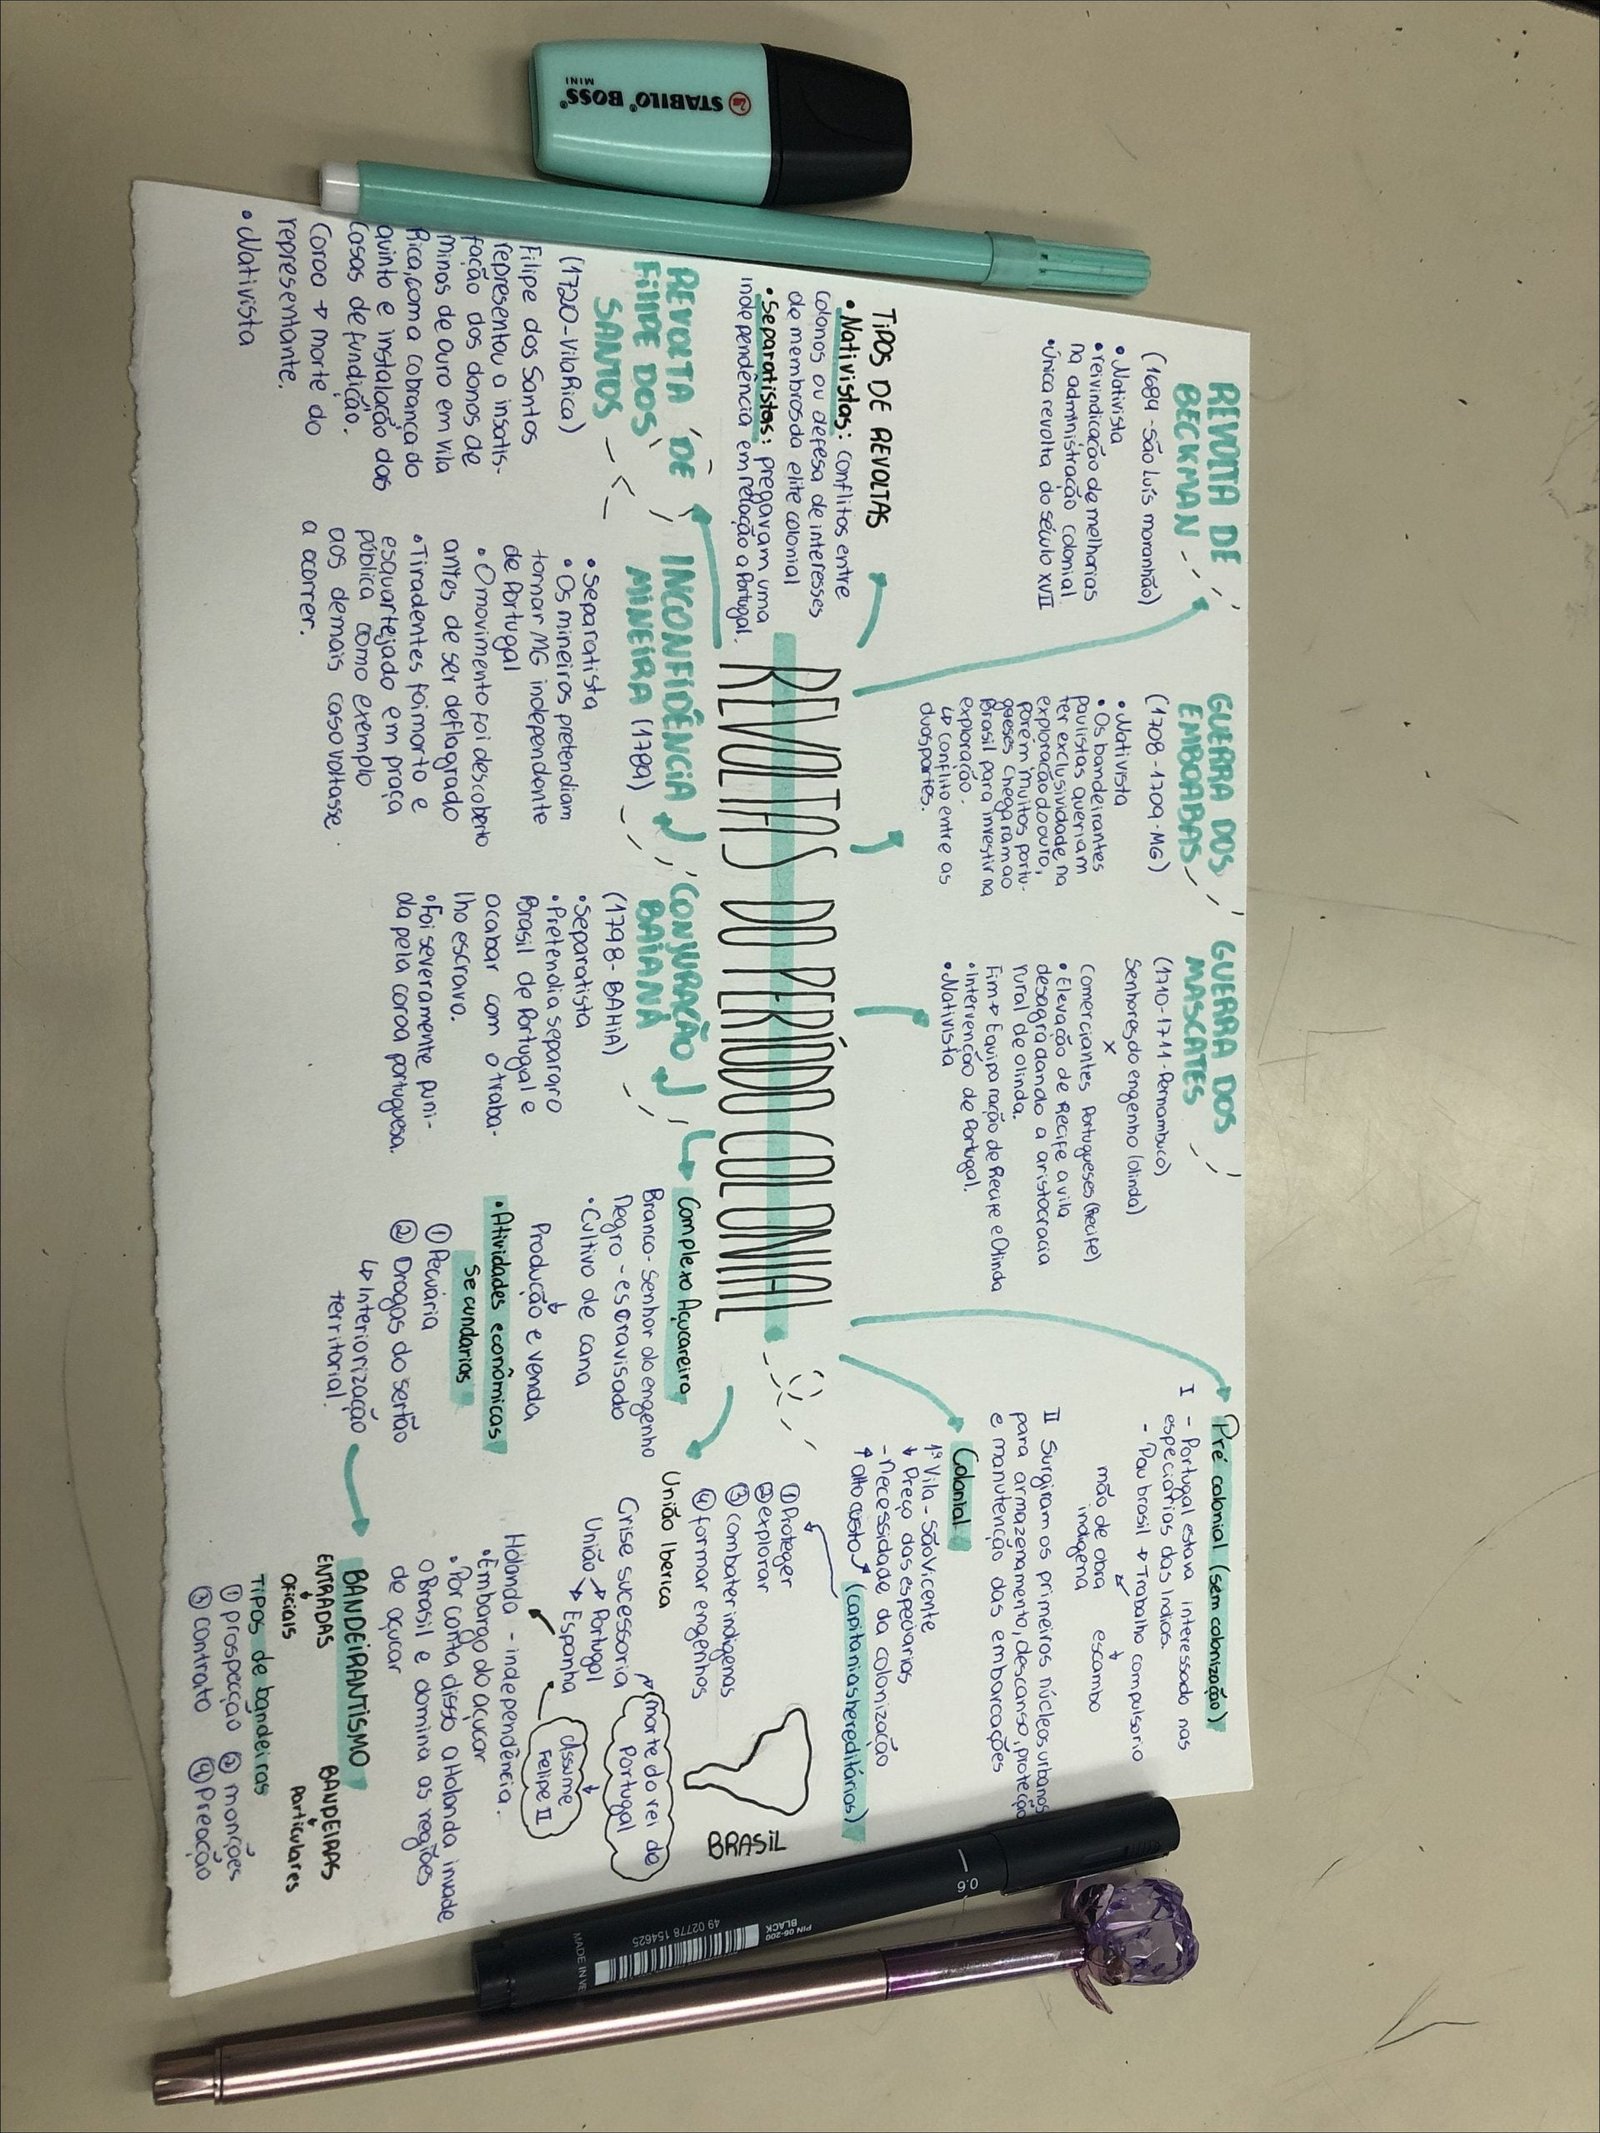 REVOLTAS DO PERÍODO COLONIAL
REVOLTA DE
BECKMAN
(1684 - São Luís maranhão)
• Nativista
• reivindicação de melhorias
na administração colonial.
• única revolta do século XVII
TIPOS DE REVOLTAS
• Nativistas: conflitos entre
colonos ou defesa de interesses
de membros da elite colonial
• Separatistas: pregavam uma
independência em relação a Portugal.
GUERRA DOS
EMBOABAS
(1708 - 1709 - MG)
• Nativista
• Os bandeirantes
paulistas queriam
ter exclusividade na
exploração do ouro,
porém, muitos portu-
gueses chegaram ao
Brasil para investir na
exploração.
↳ conflito entre as
duas partes.
GUERRA DOS
MASCATES
(1710 - 1711 - Pernambuco)
Senhores do engenho (olinda)
x
Comerciantes Portugueses (Recife)
• Elevação de Recife a vila
desagradando a aristocracia
rural de olinda.
Fim → Equiparação de Recife e Olinda
• intervenção de Portugal.
• Nativista
Pré colonial (sem colonização)
I - Portugal estava interessado nas
especiarias das Indias.
- Pau brasil → Trabalho compulsorio
mão de obra
indigena
escambo
II Surgiram os primeiros núcleos urbanos
para armazenamento, descanso, proteção
e manutenção das embarcações
Colonial
1ª Vila - São Vicente
↓ Preço das especiarias
- Necessidade da colonização
↑ alto custo ↗ (capitanias hereditárias)
① Proteger
② explorar
③ combater indigenas
④ formar engenhos
BRASIL
REVOLTA DE
FILIPE DOS
SANTOS
(1720 - Vila Rica)
Filipe dos Santos
representou a insatis-
fação dos donos de
minas de ouro em Vila
Rica, com a cobrança do
quinto e instalação das
casas de fundição.
Coroa → morte do
representante.
• Nativista
INCONFIDÊNCIA
MINEIRA (1789)
• Separatista
• Os mineiros pretendiam
tornar MG independente
de Portugal
• O movimento foi descoberto
antes de ser deflagrado
• Tiradentes foi morto e
esquartejado em praça
pública como exemplo
aos demais caso voltasse
a ocorrer.
CONJURAÇÃO
BAIANA
(1798 - BAHIA)
• Separatista
• Pretendia separar o
Brasil de Portugal e
acabar com o traba-
lho escravo.
• Foi severamente puni-
da pela coroa portuguesa.
Complexo Açucareiro
Branco - Senhor do engenho
Negro - escravisado
• Cultivo de cana
↓
Produção e venda
• Atividades econômicas
secundarias
① Pecuária
② Drogas do sertão
↳ Interiorização
territorial.
União Iberica
Crise sucessoria
União → Portugal
→ Espanha
morte do rei de
Portugal
↓
assume
Felipe II
Holanda - independência.
• Embargo do açucar
• Por conta disso a Holanda invade
o Brasil e domina as regiões
de açucar
BANDEIRANTISMO
ENTRADAS
↓
OFICIAIS
BANDEIRAS
↓
Particulares
TIPOS de bandeiras
① prospecção ② monções
③ contrato ④ Preação
STABILO BOSS
MINI
0.6
PIN 06-200
BLACK
49 02778 154625